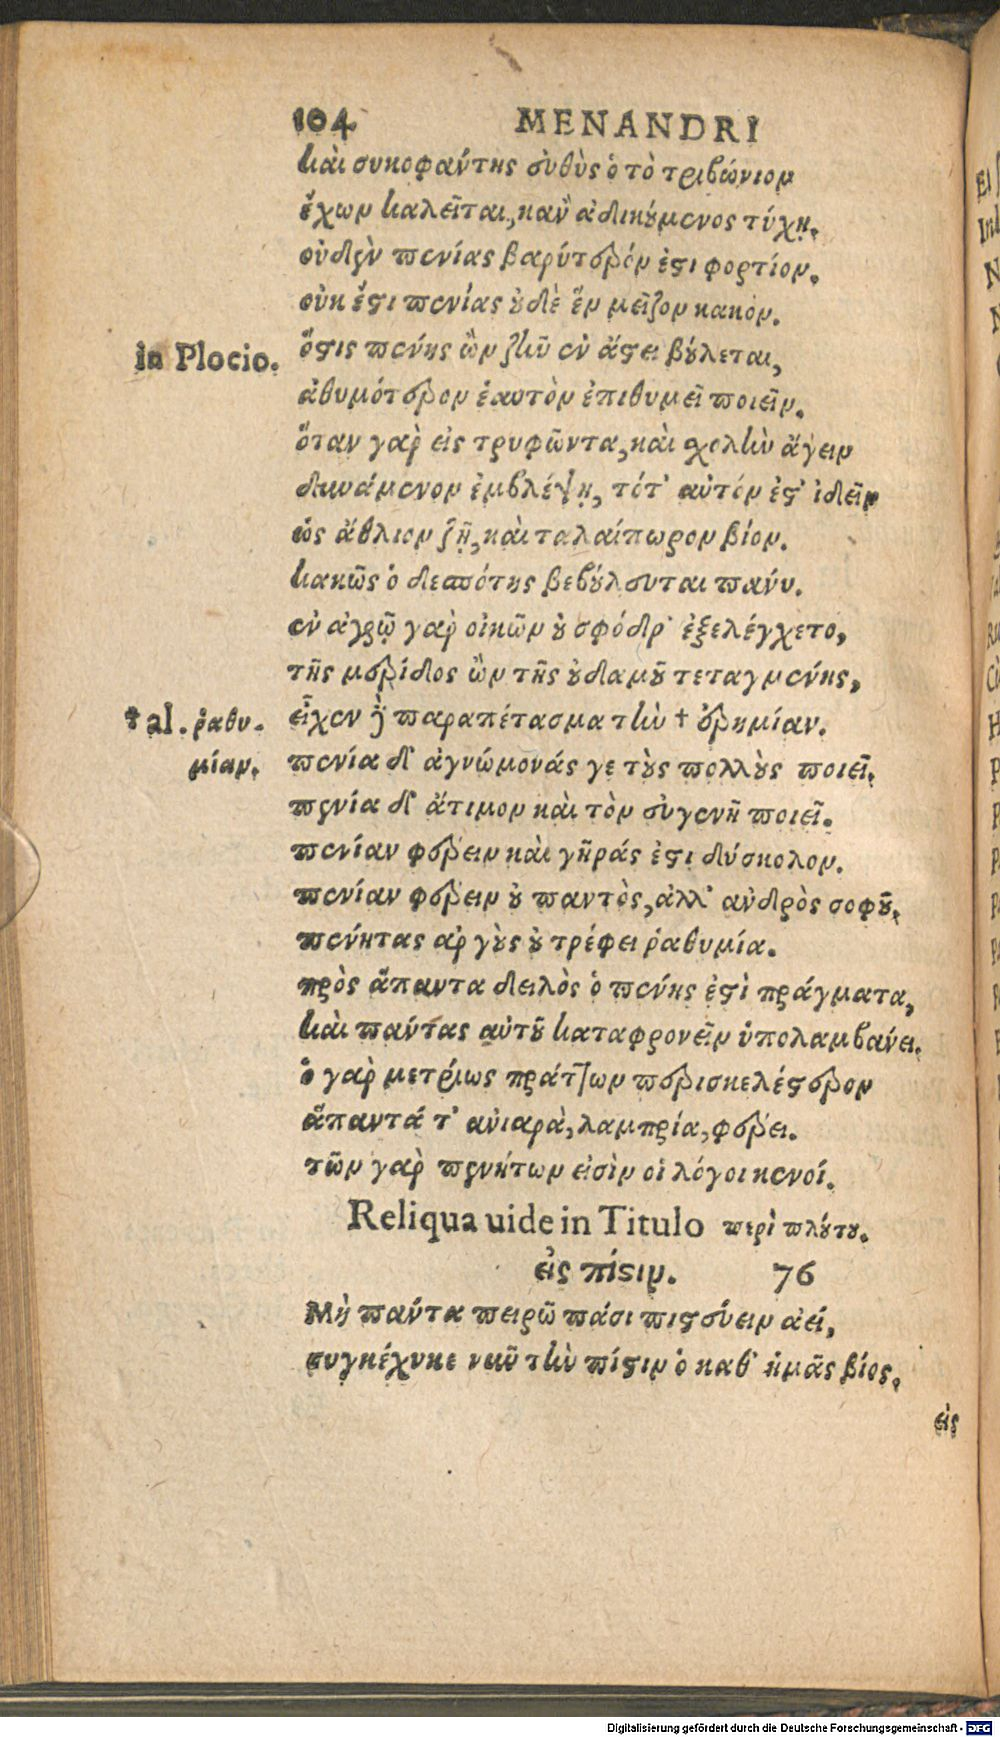 104 MENANDRI
καὶ συκοφάντης εὐθὺς ὁ τὸ τριβώνιον
ἔχων καλεῖται, κἂν ἀδικούμενος τύχῃ.
οὐδὲν πενίας βαρύτερόν ἐστι φορτίον.
οὐκ ἔστι πενίας οὐδὲ ἓν μεῖζον κακόν.
in Plocio. ὅστις πένης ὢν ζῆν ἐν ἄστει βούλεται,
ἀθυμότερον ἑαυτὸν ἐπιθυμεῖ ποιεῖν.
ὅταν γὰρ εἰς τρυφῶντα, καὶ σχολὴν ἄγειν
δυνάμενον ἐμβλέψῃ, τότ' αὐτόν ἐστ' ἰδεῖν
ὡς ἄθλιον ζῇ, καὶ ταλαίπωρον βίον.
κακῶς ὁ δεσπότης βεβούλευται πάνυ.
ἐν ἀγρῷ γὰρ οἰκῶν οὐ σφόδρ' ἐξελέγχετο,
τῆς μερίδος ὢν τῆς οὐδαμοῦ τεταγμένης,
† al. ῥαθυ- εἶχεν δὲ παραπέτασμα τὴν † ἐρημίαν.
μίαν. πενία δ' ἀγνώμονάς γε τοὺς πολλοὺς ποιεῖ.
πενία δ' ἄτιμον καὶ τὸν εὐγενῆ ποιεῖ.
πενίαν φέρειν καὶ γῆράς ἐστι δύσκολον.
πενίαν φέρειν οὐ παντὸς, ἀλλ' ἀνδρὸς σοφοῦ.
πένητας ἀργοὺς οὐ τρέφει ῥαθυμία.
πρὸς ἅπαντα δειλὸς ὁ πένης ἐστὶ πράγματα,
καὶ πάντας αὐτοῦ καταφρονεῖν ὑπολαμβάνει.
ὁ γὰρ μετρίως πράττων περισκελέστερον
ἅπαντά τ' ἀνιαρὰ, λαμπρία, φέρει.
τῶν γὰρ πενήτων εἰσὶν οἱ λόγοι κενοί.
Reliqua uide in Titulo περὶ πλούτου.
εἰς πίστιν. 76
Μὴ πάντα πειρῶ πᾶσι πιστεύειν ἀεί,
συγκέχυκε νῦν τὴν πίστιν ὁ καθ' ἡμᾶς βίος.
εἰς
Digitalisierung gefördert durch die Deutsche Forschungsgemeinschaft - DFG